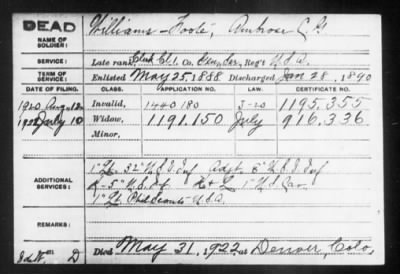 DEAD
NAME OF SOLDIER:
Williams-Foote, Ambrose
SERVICE:
Late rank, Clerk Cl. 1. Co. Gen. Ser, Reg't U.S.A.
TERM OF SERVICE
Enlisted May 25, 1888 Discharged Jan 28, 1890
DATE OF FILING. CLASS. APPLICATION NO. LAW. CERTIFICATE NO.
1920 Aug 12 Invalid, 1440 180 J-20 1195.355
1922 July 10 Widow, 1191.150 July 916.336
Minor,
ADDITIONAL SERVICES:
1" Lt. 32" U.S.V. Inf Adjt.
K-5" U.S. Inf 1" U.S. Cav
1" Lt. Phil Scouts U.S.A.
REMARKS:
D Died May 31, 1922 at Denver, Colo,